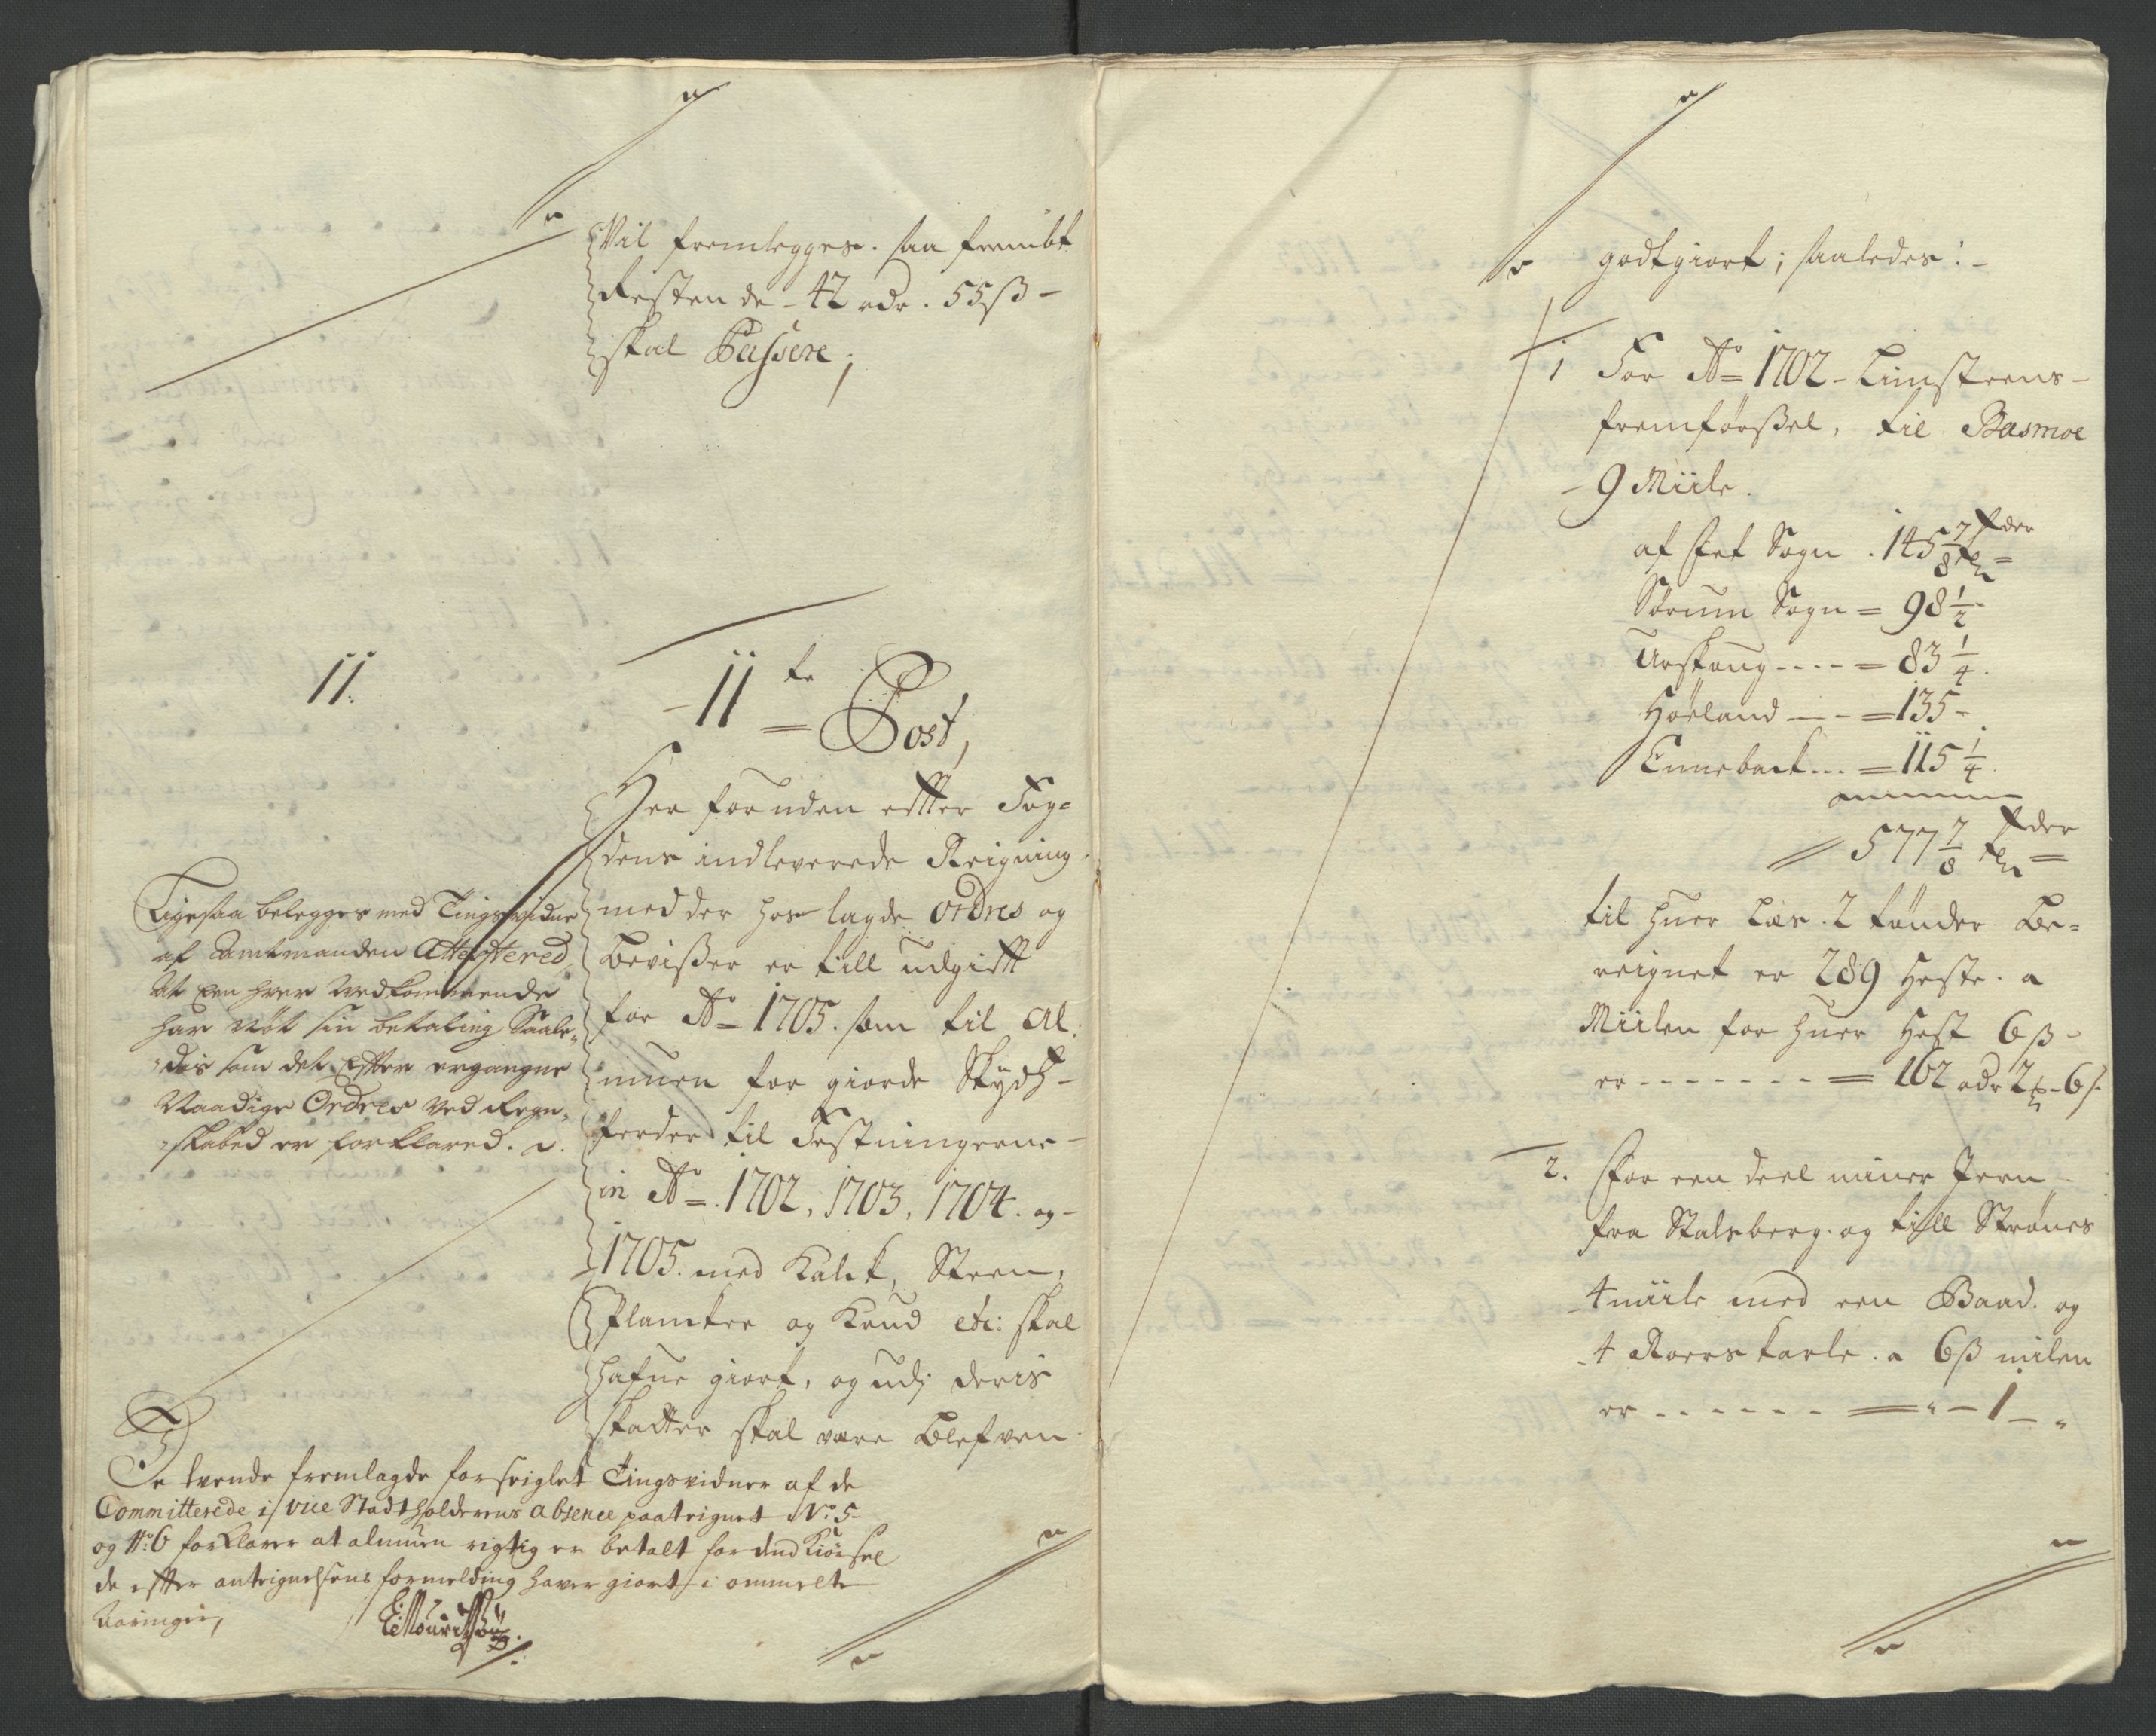 Vil fremlegges. saa frembt
Resten de - 42 rdr. 55 ß -
skal Passere;
11.
- 11 te Post,
Her foruden effter Fog=
dens indleverede Reigning
med der hos lagde ordres og
Bevißer er till udgifft
for Ao = 1705. som til Al:
muen for giorde Skyds-
ferder til Festningerne -
in Ao = 1702, 1703, 1704. og -
1705. med Kalck, Steen,
Plancker og Krud etc: skal
hafue giort, og udj deris
skatter skal være Blefven
Ligesaa belegges med Tingsvidne
af Amtmanden Attestered
At Een hver Vedkommende
har Nöt sin betaling Saale„
„des som det Efter ergangne
Naadige Ordres ved Regn„
„skabed er forklared.
De tvende fremlagde forseiglet Tingsvidner af de
Committerede i Vice Stadtholderens Absence paateignet No: 5
og No: 6 forklarer at almuen rigtig er betalt for dend Kiörsel
de effter antegnelsens formelding haver giort i ommelte
Aaringer,
godtgiort; saaledes: -
1 For Ao = 1702 - Limsteens -
fremförßel, til Basmoe
- 9 Miile.
af Fet Sogn . 145 7/8 tdr =
Sörum Sogn = 98 1/2
Urskoug - - - - = 83 1/4.
Höeland - - - = 135 -
Enneback - - - = 115 1/4.
= 577 7/8 tdr =
til huer Læs. 2 tönder Be=
reignet er 289 Heste. a
Miilen for huer Hest 6 ß -
er - - - - - - - = 162 rdr 2 - 6 ß
2. For een deel miner Jern
fra Stalsberg. og till Strönes
4 miile med een Baad. og
4 Roers karle. a 6 ß milen
er - - - - - - = „ - 1 - „